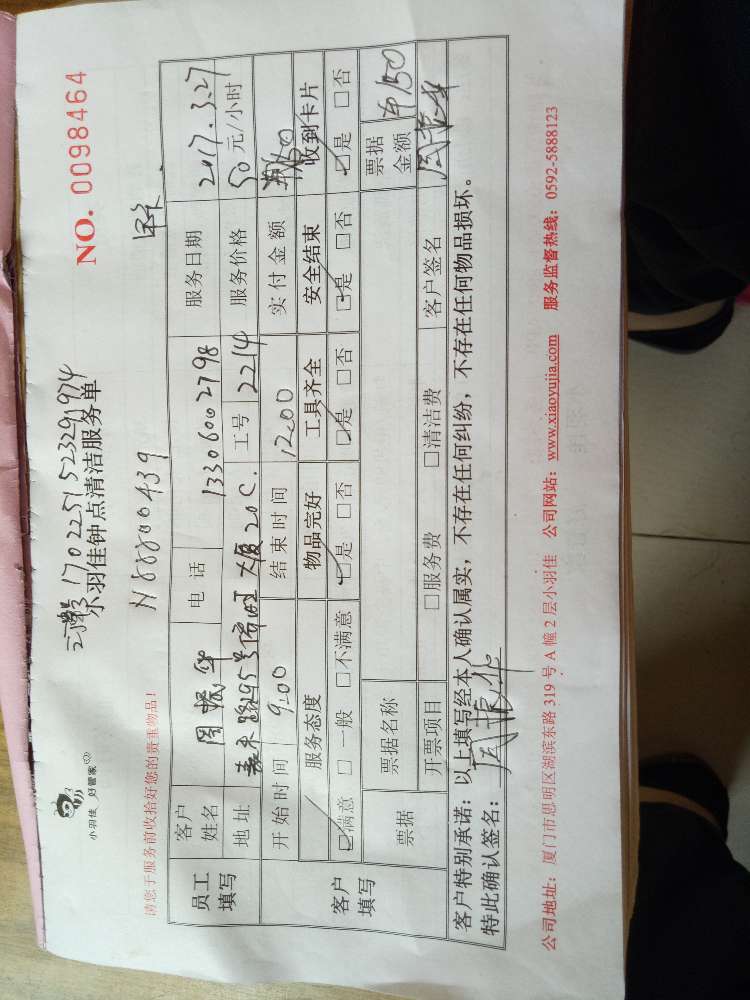 小羽佳 好管家
1702251523291974
小羽佳钟点清洁服务单
NO. 0098464
请您于服务前收拾好您的贵重物品！
N88800439
员工填写
客户姓名 周振华 电话 13306002798 服务日期 2017.3.27
地址 嘉禾路295号 大厦20C. 工号 2214 服务价格 50元/小时
开始时间 9:00 结束时间 12:00 实付金额
客户填写
服务态度 物品完好 工具齐全 安全结束 收到卡片
☑满意 □一般 □不满意 ☑是 □否 ☑是 □否 ☑是 □否 ☑是 □否
票据 票据名称 票据金额 ¥150
开票项目 □服务费 □清洁费 客户签名 周振华
客户特别承诺：以上填写经本人确认属实，不存在任何纠纷，不存在任何物品损坏。
特此确认签名：周振华
公司地址：厦门市思明区湖滨东路 319 号 A 幢 2 层小羽佳 公司网站：www.xiaoyujia.com 服务监督热线：0592-5888123